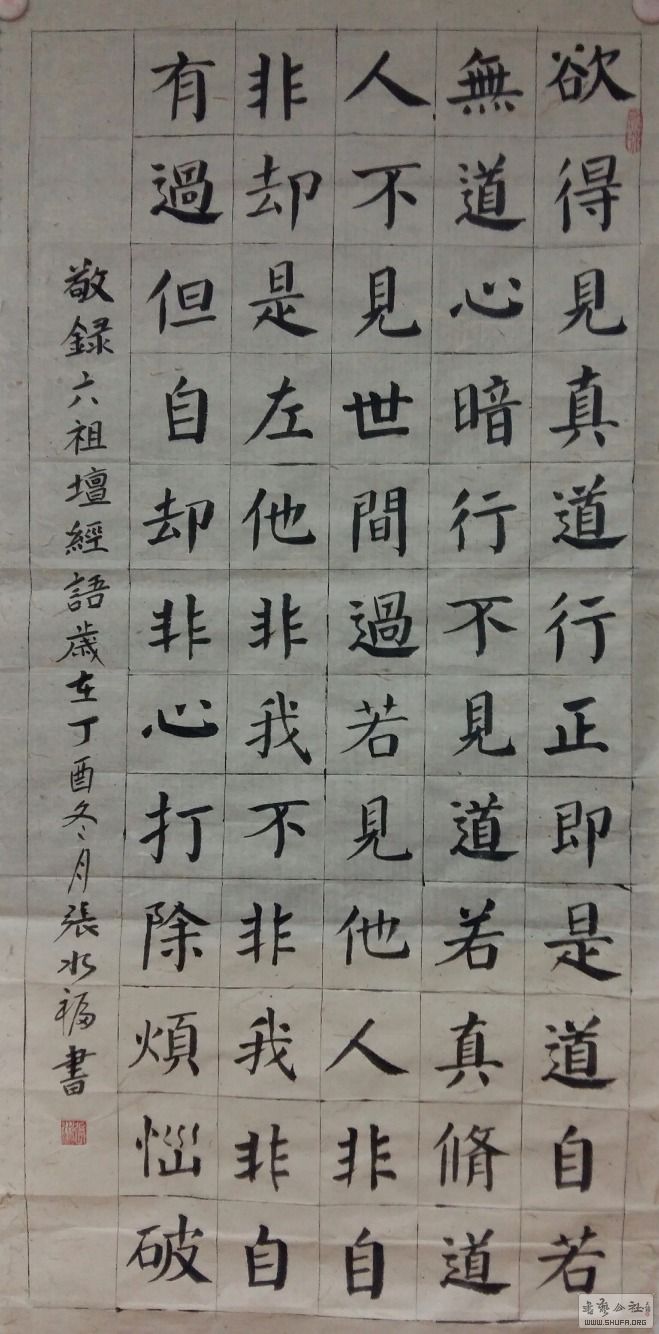 欲得見真道行正即是道自若
無道心暗行不見道若真脩道
人不見世間過若見他人非自
非却是左他非我不非我非自
有過但自却非心打除煩惱破
敬録六祖壇經語歲在丁酉冬月張水福書
書藝公社
WWW.SHUFA.ORG